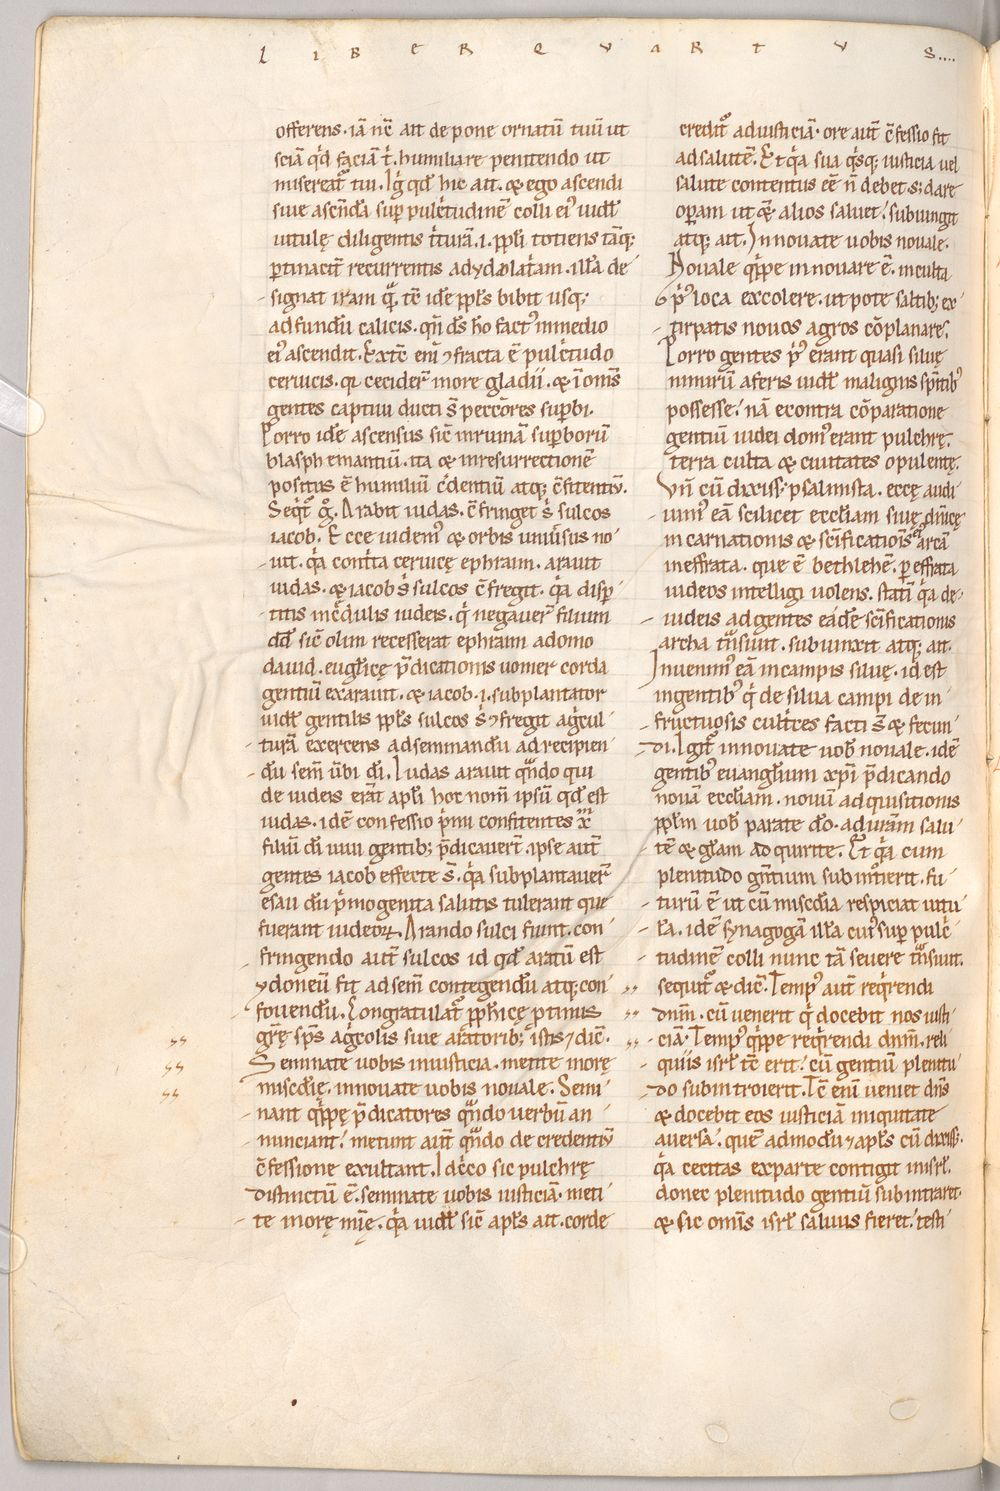 LIBER QVARTVS....
offerens. iā nc̄ ait depone ornatū tuū ut
sciā qd̛ faciā t̛. humiliare penitendo ut
misereat᷑ tui. Ig̛ qd̛ hic ait. & ego ascendi
siue ascn̄dā sup pulc̛tudinē colli ei᷒ uidl̛t
uitulę diligentis t̛turā. i. pp̄li totiens tāq;
ꝑtinacit̛ recurrentis ad ydolat̛am. illā de
signat iram q̄. tc̄ ide pp̄ls bibit usq;
ad fundū calicis. qn̄ ds̄ ho fact᷒ in medio
ei᷒ ascendit. Ex tc̄ eni᷒ ⁊fracta ē pulc̛tudo
ceruicis. qi ceciderͫ more gladii. & ī om̄s
gentes captiui ducti s̄ peccōres supbi.
Porro ide ascensus sic̄ in ruinā supborū
blasphemantiū. ita & in resurrectionē
positus ē humiliū c̛dentiū atq; ↄfitentiū.
Seqt᷑ g̊. Arabit iudas. ↄfringet s̛ sulcos
iacob. Ecce uidem᷒ & orbis uniưsus no
uit. q̛a cont̛ta ceruicę ephraim. arauit
iudas. & iacob s̛ sulcos ↄfregit. q̛a disp
titis inc̛dulis iudeis. q̛ negauer̄ filium
dd̄ sic̄ olim recesserat ephraim a domo
dauid. eug̛licę p̄dicationis uomer corda
gentiū exarauit. & iacob. i. subplantator
uidl̛t gentilis pp̄ls sulcos s̛ ⁊fregit ag̛cul
turā exercens ad seminandū ad recipien
dū sem̄ ưbi di̛. Iudas arauit qn̄do qui
de iudeis erāt apl̛i hoc nom̄ ipsū qd̛ est
iudas. id ē confessio p̛mi confitentes xp̄m
filiū di̛ uiui gentib; p̄dicauer̄t. ipse aut̄
gentes iacob effecte s̄. q̛a subplantauer̄
esau dū p̛mogenita salutis tulerant que
fuerant iudeoꝝ. Arando sulci fiunt. con
fringendo aut̄ sulcos id qd̛ aratū est
ydoneū fit ad sem̄ contegendū atq; con
fouendū. Congratulat᷑ pp̄hicę ptinus
grę sp̄s ag̛colis siue aratorib; istis ⁊ dic̄.
Seminate uobis in iusticia. metite in orę
miscdię. innouate uobis nouale. Semi
nant qppę p̄dicatores qn̄do uerbū an
nunciant. metunt aut̄ qn̄do de credentiū
ↄfessione exultant. Idc̛co sic pulchrę
distinctū ē. seminate uobis iusticiā. meti
te in orę mīę. q̛a uidl̛t sic̄ apl̄s ait. corde
credit᷑ ad iusticiā. ore aut̄ ↄfessio fit
ad salutē. Et q̛a sua q̛sq; iusticia uel
salute contentus ēē n̄ debet s; dare
operam ut & alios saluet. subiungit
atq; ait. Innouate uobis nouale.
Nouale q̛ppe innouare ē. inculta
p̛᷒ loca excolere. ut pote saltib; ex
tirpatis nouos agros cōplanare.
Porro gentes p̛᷒ erant quasi siluę
nimirū a feris uidl̛t malignis spn̄tib᷒
possesse. nā econtra cōparatione
gentiū iudei dom᷒ erant pulchrę.
terra culta & ciuitates opulentę.
Vn̄ cū dixiss; psalmista. eccę audi
uim᷒ eā scilicet eccl̄iam siuę dn̄icę
incarnationis & sc̄ificationis & arcā
in effrata. que ē bethlehē. p effrata
iudeos intelligi uolens. statī q̛a de
iudeis ad gentes eadē sc̄ificationis
archa tn̄siuit. subiunxit atq; ait.
Inuenim᷒ eā in campis siluę. id est
in gentib᷒ q̛ de silua campi de in
fructuosis cult̛ces facti s̄ & fecun
di. Igit᷑ innouate uob̄ nouale. id ē
gentib᷒ euanglium xpi̛ p̄dicando
nouā eccl̄iam. nouū adquisitionis
pp̄lm uob̄ parate dō. ad ueram salu
tē & gl̄am adquirite. Et q̛a cum
plenitudo gn̄tium subintroierit. fu
turū ē ut cū miscdia respiciat uitu
lā. id ē synagogā illā cui᷒ sup pulc̛
tudinē colli nunc tā seuere tn̄siuit.
sequit᷑ & dic̄. Temp᷒ aut̄ req̛rendi
dnm̄. cū uenerit q̛ docebit nos iusti
ciā. Temp᷒ q̛ppe req̛rendi dnm̄. reli
quiis isrl̄ tc̄ erit. cū gentiū plenitu
do subintroierit. Tc̄ eni᷒ ueniet dn̄s
& docebit eos iusticiā iniquitate
auersa. quē admodū ⁊ apl̄s cū dixiss;
q̛a cecitas ex parte contigit in isrl̄.
donec plenitudo gentiū subintraret.
& sic omīs isrl̄ saluus fieret. testi